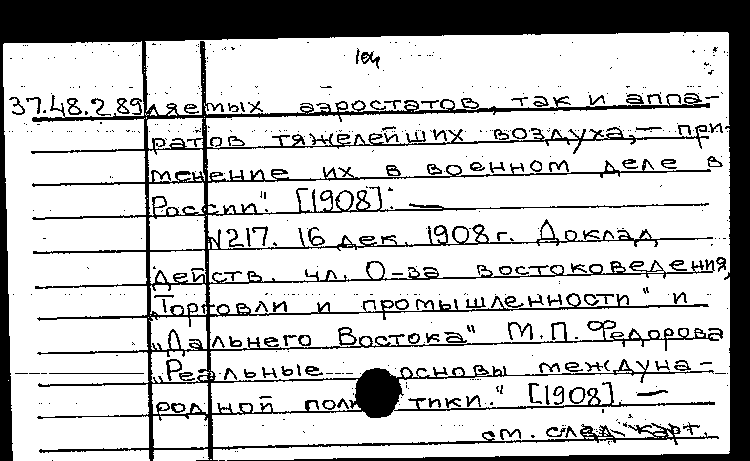 104
37.48.2.89 ляемых аэростатов, так и аппа-
ратов тяжелейших воздуха, — при-
менение их в военном деле в
России". [1908]. —
№217. 16 дек. 1908 г. Доклад
действ. чл. О-ва востоковедения,
„Торговли и промышленности" и
„Дальнего Востока" М.П. Федорова
„Реальные основы междуна-
родной политики." [1908]. —
см. след. карт.